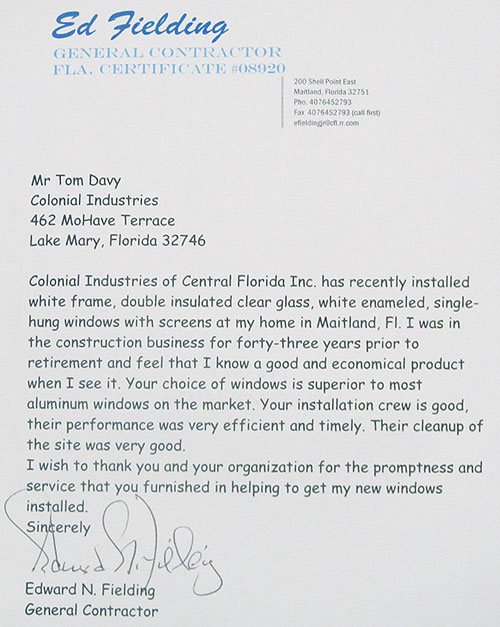 Ed Fielding
GENERAL CONTRACTOR
FLA. CERTIFICATE #08920
200 Shell Point East
Maitland, Florida 32751
Pho. 4076452793
Fax 4076452793 (call first)
efieldingjr@cfl.rr.com
Mr Tom Davy
Colonial Industries
462 MoHave Terrace
Lake Mary, Florida 32746
Colonial Industries of Central Florida Inc. has recently installed
white frame, double insulated clear glass, white enameled, single-
hung windows with screens at my home in Maitland, Fl. I was in
the construction business for forty-three years prior to
retirement and feel that I know a good and economical product
when I see it. Your choice of windows is superior to most
aluminum windows on the market. Your installation crew is good,
their performance was very efficient and timely. Their cleanup of
the site was very good.
I wish to thank you and your organization for the promptness and
service that you furnished in helping to get my new windows
installed.
Sincerely
Edward N. Fielding
Edward N. Fielding
General Contractor